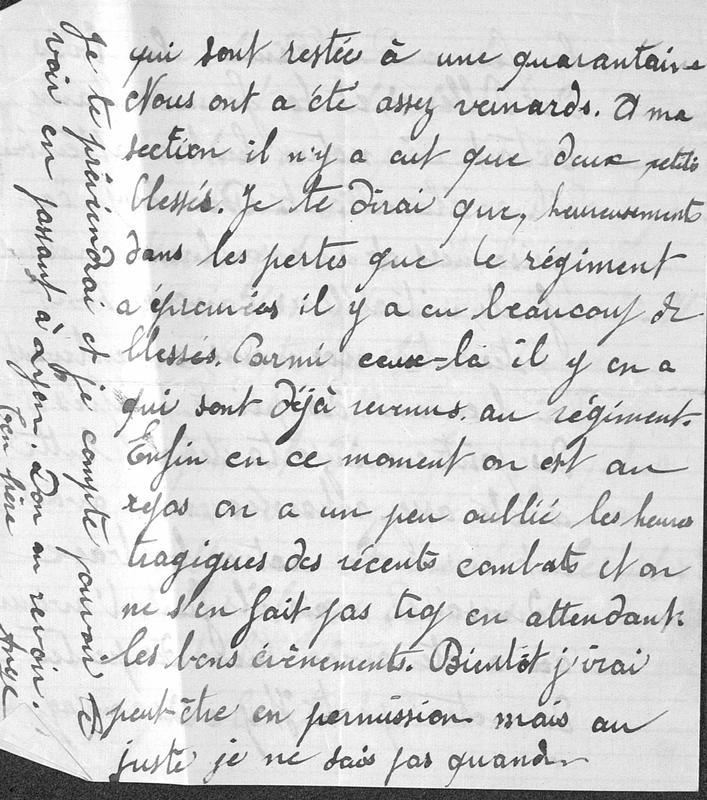 qui sont restée à une quarantaine
Nous ont a été assez veinards. A ma
section il n'y a eut que deux petits
blessés. Je te dirai que, heureusement
dans les pertes que le régiment
a éprouvées il y a eu beaucoup de
blessés. Parmi ceux-là il y en a
qui sont déjà revenus au régiment.
Enfin en ce moment on est au
repos on a un peu oublié les heures
tragiques des récents combats et on
ne s'en fait pas trop en attendant
les bons évènements. Bientôt j'irai
peut-être en permission mais au
juste je ne sais pas quand.
Je te préviendrai et je compte pouvoir te
voir en passant à Lyon. Don au revoir.
Ton frère